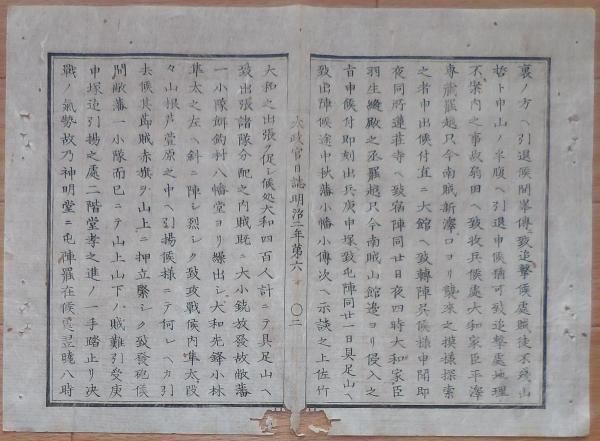 裏ノ方ヘ引退候間峯傳致追撃候處賊徒不残山
哲ト申山ノ半腹ヘ引退申候猶可致追撃處地理
不案内之事故前田ヘ致收兵候處大和家臣平澤
專罷越只今南賊新澤口ヨリ襲来之摸様探索
之者申出候付直ニ大館ヘ致轉陣兵候様申聞即
夜同所蓮荘寺ヘ致宿陣同廿日夜四時大和家臣
羽生縫殿之丞罷越只今南賊山館邉ヨリ侵入之
旨申候付即刻出兵庚申塚致屯陣同廿一日具足山ヘ
致出陣候途中秋藩小幡小傳次ヘ示談之上佐竹
太政官日誌明治二年第六 〇二
大和之出張ヲ促シ候処大和四百人計ニテ具足山ヘ
致出張諸隊分配之内賊既ニ大小銃放發故敝藩
一小隊餌釣村八幡堂ヨリ繰出シ大和先鋒小林
隼太之左ヘ斜ニ陣シ烈シク致攻戰候内隼太段
々山根芦萱原之中ヘ引揚候様ニテ何レヘカ引
去候其節賊赤旗ヲ山上ニ押立緊シク致發砲候
間敝藩一小隊而已ニテ山上山下ノ賊難引受庚
申塚迄引揚之處二階堂孝之進ノ一手踏止リ決
戰ノ氣勢故乃神明堂ニ屯陣罷在候處翌曉八時